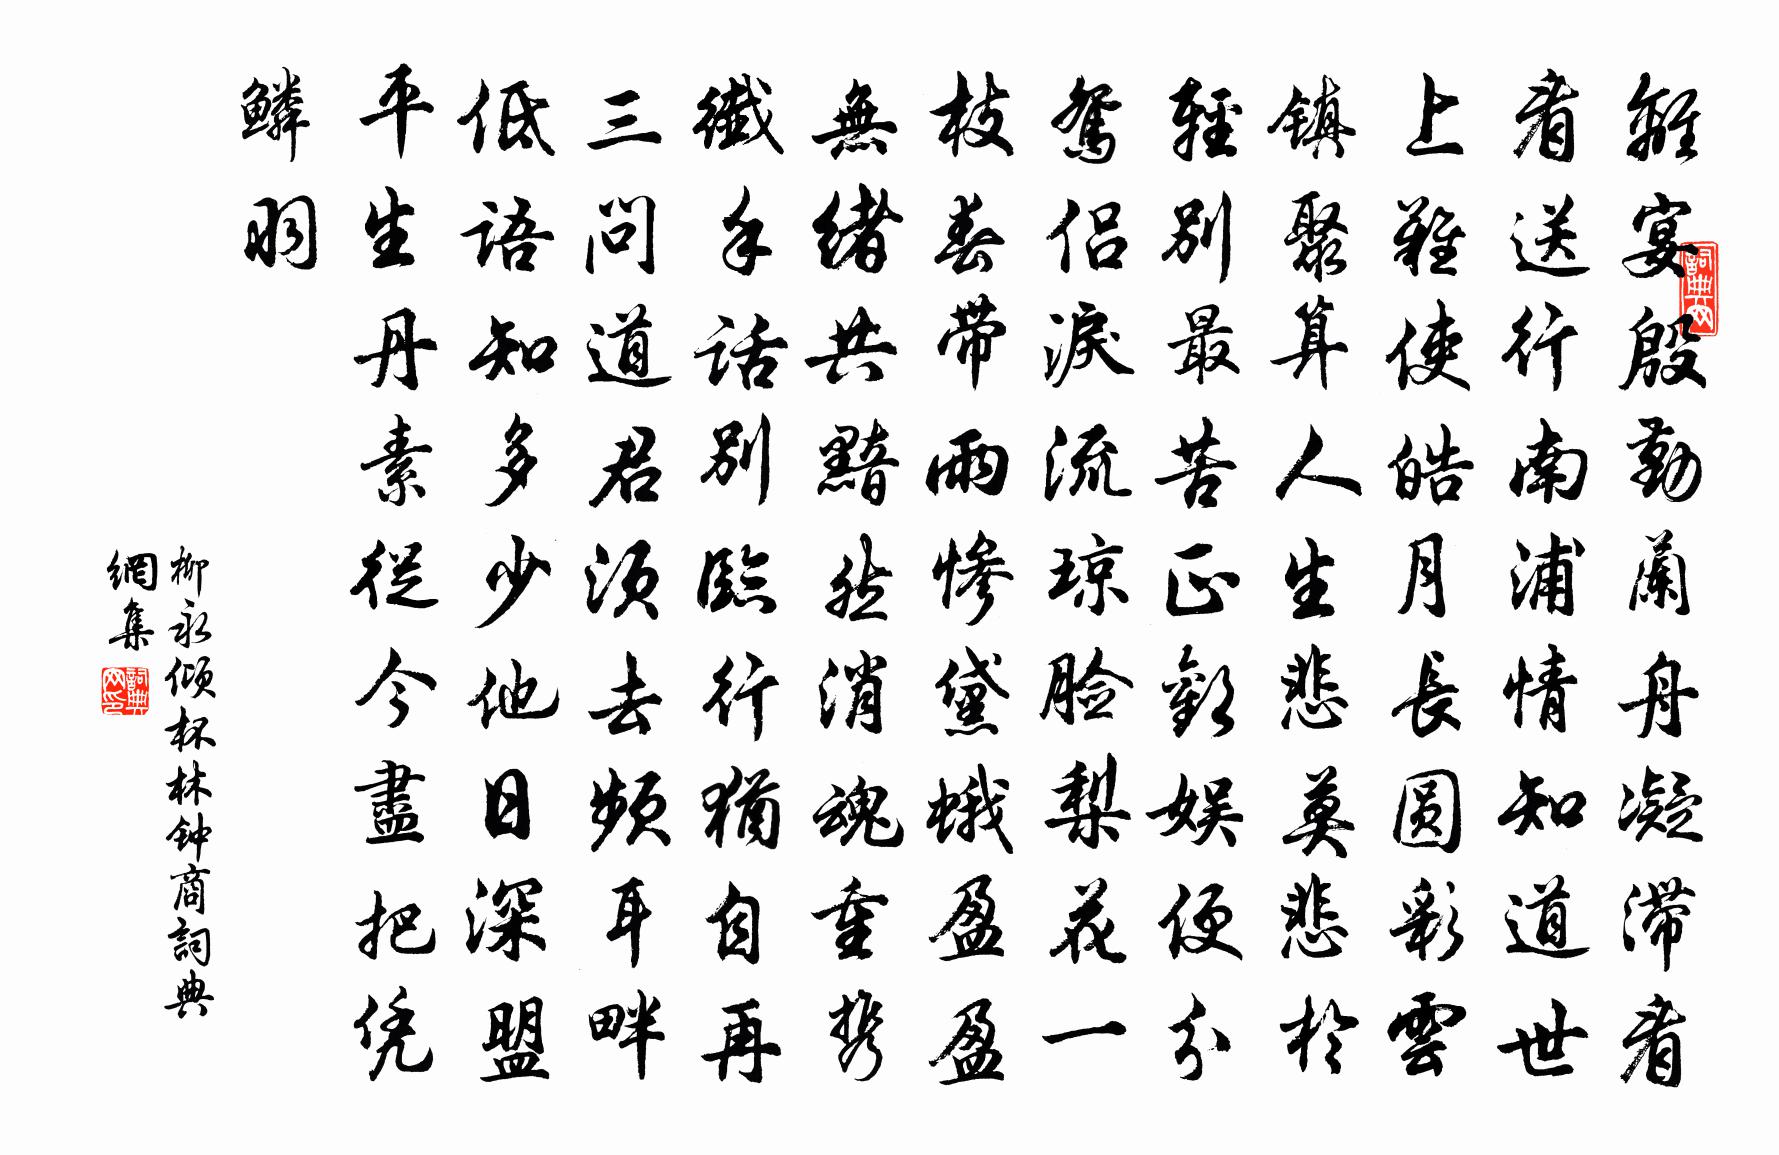 離宴殷勤蘭舟凝滯看
看送行南浦情知道世
上難使皓月長圓彩雲
镇聚算人生悲莫悲於
輕別最苦正歡娛便分
鴛侶淚流琼脸梨花一
枝春帶雨慘黛蛾盈盈
無緒共黯然消魂重携
纖手話別臨行猶自再
三問道君須去頻耳畔
低語知多少他日深盟
平生丹素從今盡把凭
鱗羽
柳永傾杯林钟商詞典
網集
詞典网
詞典网印